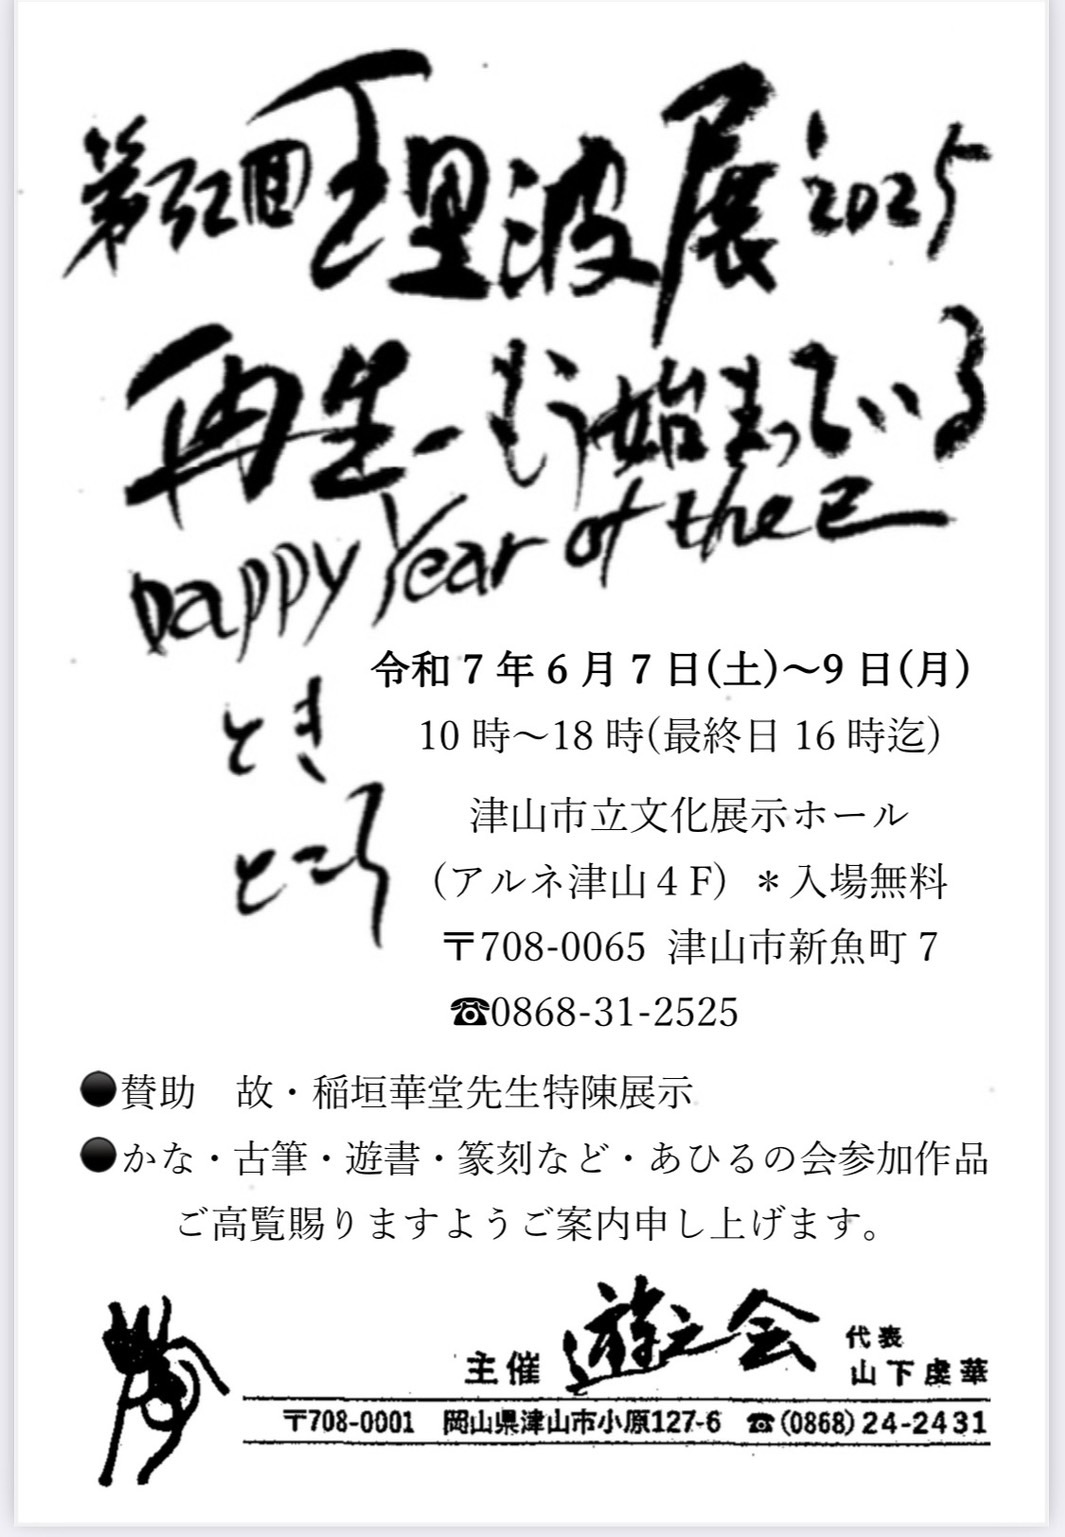 第52回 理波展 '2025
再生ーもう始まっている
happy Year of the 巳
とき
令和7年6月7日(土)〜9日(月)
10時〜18時(最終日16時迄)
ところ
津山市立文化展示ホール
(アルネ津山4F) ＊入場無料
〒708-0065 津山市新魚町7
☎0868-31-2525
●賛助　故・稲垣華堂先生特陳展示
●かな・古筆・遊書・篆刻など・あひるの会参加作品
ご高覧賜りますようご案内申し上げます。
主催 遊之会 代表
山下虔華
〒708-0001 岡山県津山市小原127-6 ☎(0868)24-2431